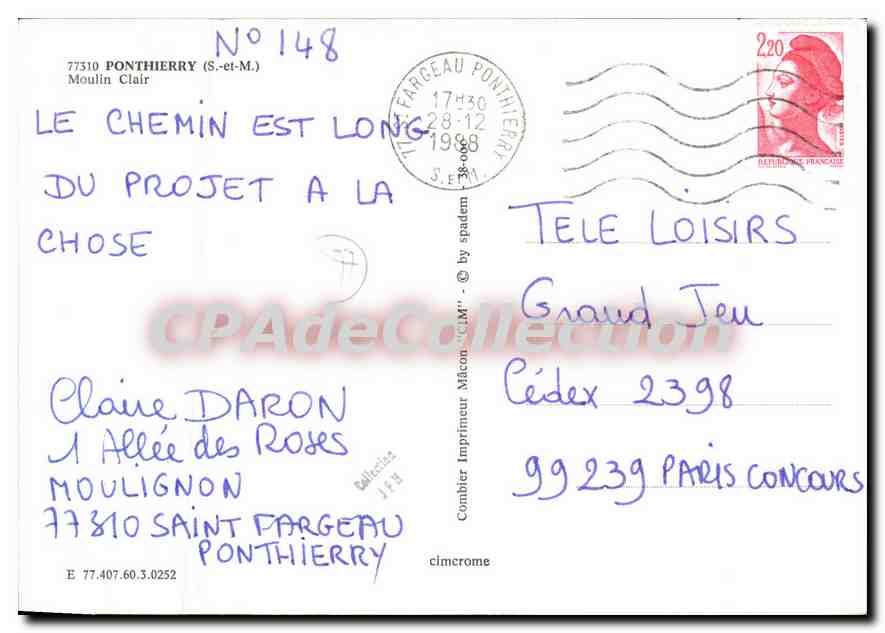 N° 148
77310 PONTHIERRY (S.-et-M.)
Moulin Clair
LE CHEMIN EST LONG
DU PROJET A LA
CHOSE
77
Claire DARON
1 Allée des Roses
MOULIGNON
77310 SAINT FARGEAU
PONTHIERRY
E 77.407.60.3.0252
cimcrome
Collection
JFH
Combier Imprimeur Mâcon "CIM" - © by spadem - 38-000
77 ST FARGEAU PONTHIERRY
17H30
28-12
1988
S. ET M.
2,20
REPUBLIQUE FRANCAISE
TELE LOISIRS
Grand Jeu
Cédex 2398
99239 PARIS CONCOURS
CPAdeCollection